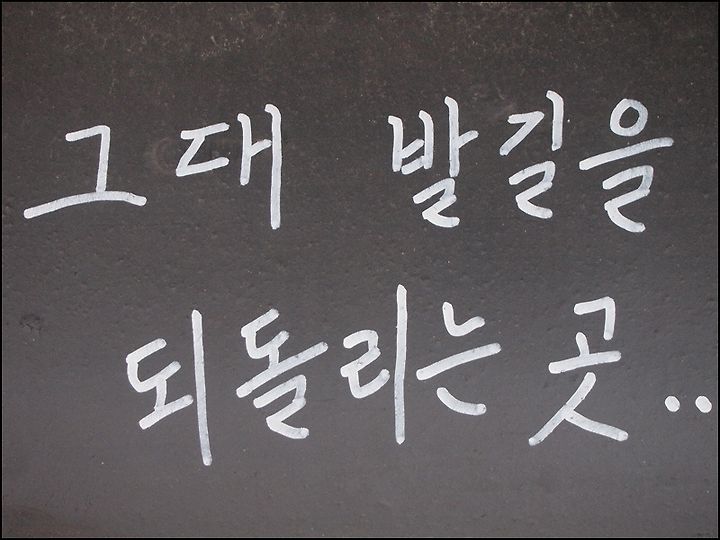 그대 발길을
되돌리는 곳..